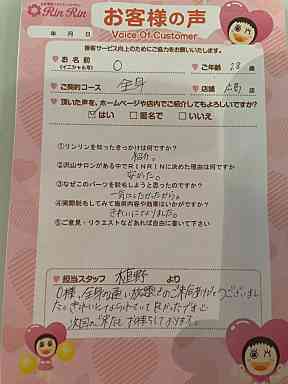 Rin Rin
お客様の声
Voice Of Customer
年 月 日
接客サービス向上のためにご協力をお願いいたします。
お名前
(イニシャル可)
O
ご年齢 28 歳
ご契約コース 全身
店舗 広島 店
頂いた声を、ホームページや店内でご紹介してもよろしいですか?
☑はい □匿名で □いいえ
①リンリンを知ったきっかけは何ですか?
紹介。
②沢山サロンがある中でRINRINに決めた理由は何ですか
安かった。
③なぜこのパーツを脱毛しようと思ったのですか?
一気にしたかったから。
④実際脱毛してみて施術内容や効果はいかがですか?
きれいになりました。
⑤ご意見・リクエストなどあれば自由に書いて下さい
担当スタッフ 植野 より
O様、全身の通い放題でのご来店ありがとうございまし
た。きれいになられていて良かったです☺
次回のご来店もお待ちしております。